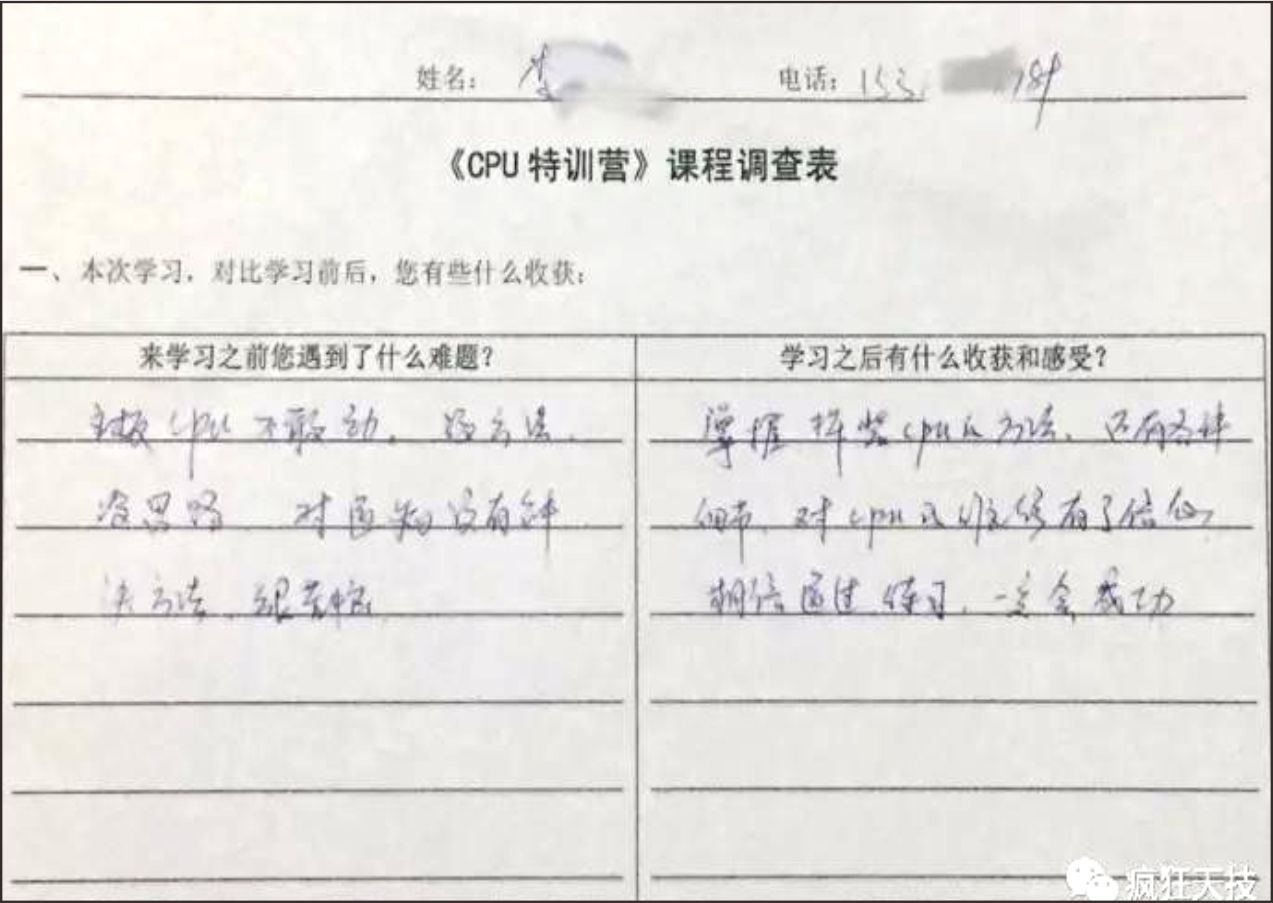 姓名: 李 电话: 153
《CPU特训营》课程调查表
一、本次学习,对比学习前后,您有些什么收获:
来学习之前您遇到了什么难题?
主板CPU不敢动。没方法.
没思路. 对 没有解
决方法.
学习之后有什么收获和感受?
掌握拆装CPU的方法、各种
细节、对CPU的维修有了信心
相信通过练习、一定会成功
疯狂天技